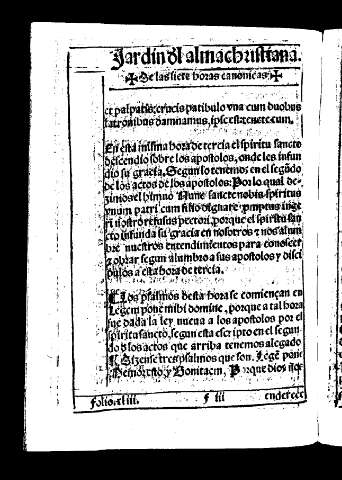 Jardin dl alma christiana.
✠ De las siete horas canonicas ✠
et palpatis: crucis patibulo vna cum duobus
latronibus damnamus, ipse est: tenete eum.
En esta misma hora de tercia el spiritu sancto
descendio sobre los apostolos, onde les infun
dio su gracia. Segun lo tenemos en el segũdo
de los actos de los apostolos: Por lo qual de-
zimos el himno Nunc sancte nobis spiritus
vnum patri cum filio dignare prmptus inge
ri nostro refusus pectori, porque el spiritu san
cto infunda su gracia en nosotros z nos alum
bre nuestros entendimientos para conoscer
z obrar segun alumbro a sus apostolos y disci
pulos a esta hora de tercia.
¶ Los psalmos desta hora se comiençan en
Legem pone mihi domine, porque a tal hora
fue dada la ley nueua a los apostolos por el
spiritu sancto, segun esta escripto en el segun
do dlos actos que arriba tenemos alegado
¶ Dizense tres psalmos que son. Legẽ pone
Memor esto, y Bonitatem, Porque dios
folio. xliii. F iii enderece